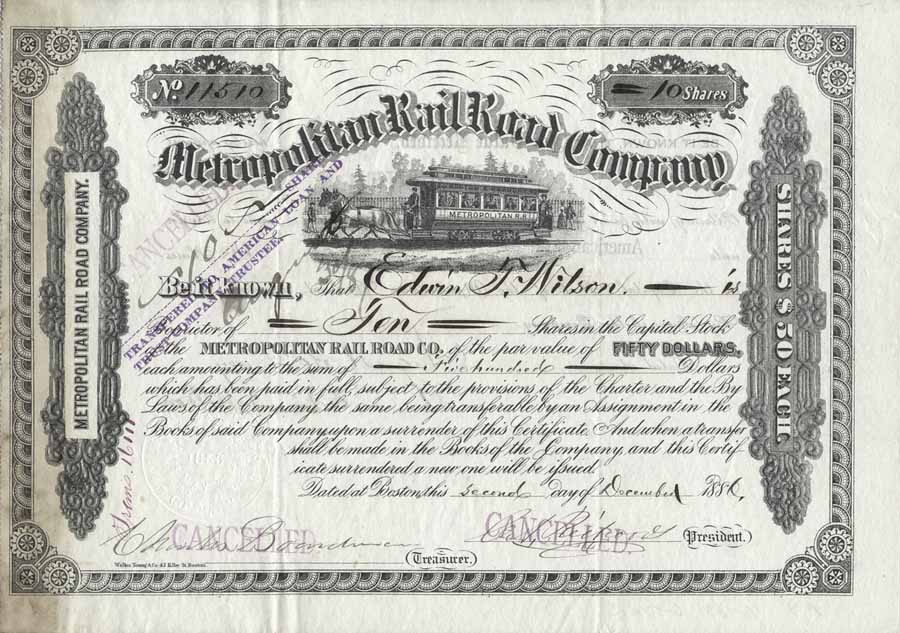 No. 11510
10 Shares
Metropolitan Rail Road Company
METROPOLITAN R.R.
CANCELLED
TRANSFERRED, AMERICAN LOAN AND
TRUST COMPANY, TRUSTEE.
SHARE
METROPOLITAN RAIL ROAD COMPANY.
SHARES $50 EACH.
Be it known, that Edwin F. Wilson. is
Proprietor of Ten Shares in the Capital Stock
of the METROPOLITAN RAIL ROAD CO. of the par value of FIFTY DOLLARS,
each amounting to the sum of Five hundred Dollars
which has been paid in full, subject to the provisions of the Charter and the By
Laws of the Company, the same being transferable by an Assignment in the
Books of said Company upon a surrender of this Certificate. And when a transfer
shall be made in the Books of the Company, and this Certif
icate surrendered a new one will be issued
Dated at Boston, this second day of December 1886.
CANCELLED
CANCELLED
(President.)
(Treasurer.)